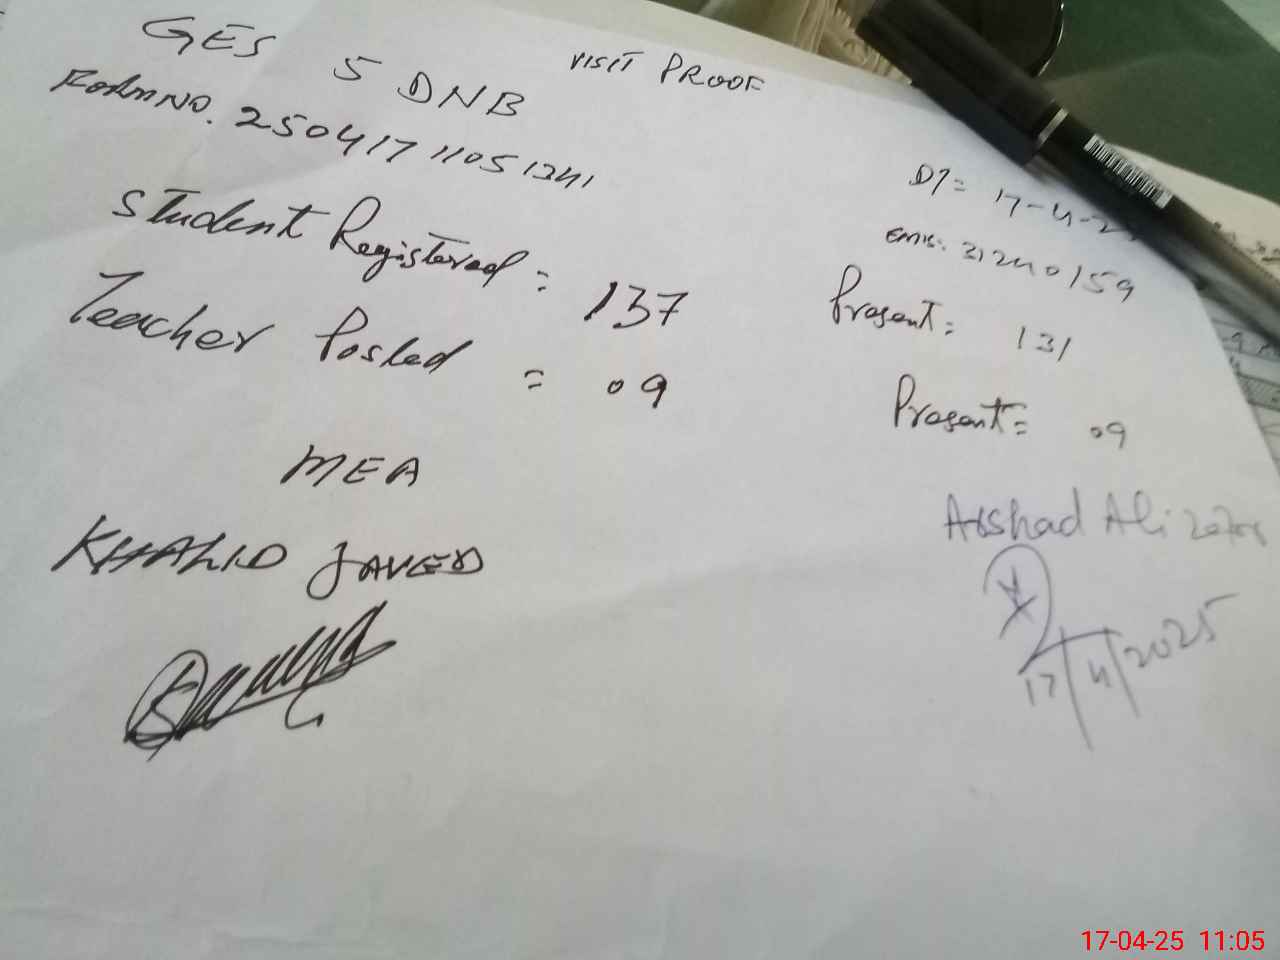 VISIT PROOF
GES 5 DNB
Form NO. 250417 1105 1241
DT= 17-4-25
EMIS: 31240159
Student Registered = 137
Present = 131
Teacher Posted = 09
Present = 09
MEA
KHALID JAVED
Arshad Ali
17/4/2025
17-04-25 11:05